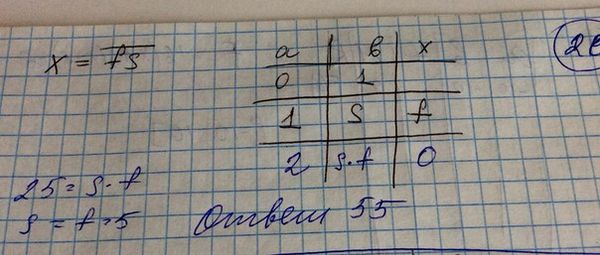 x = fs
a в x
0 1
1 s f
2 s·f 0
25 = s·f
s = f = 5
Ответ 55